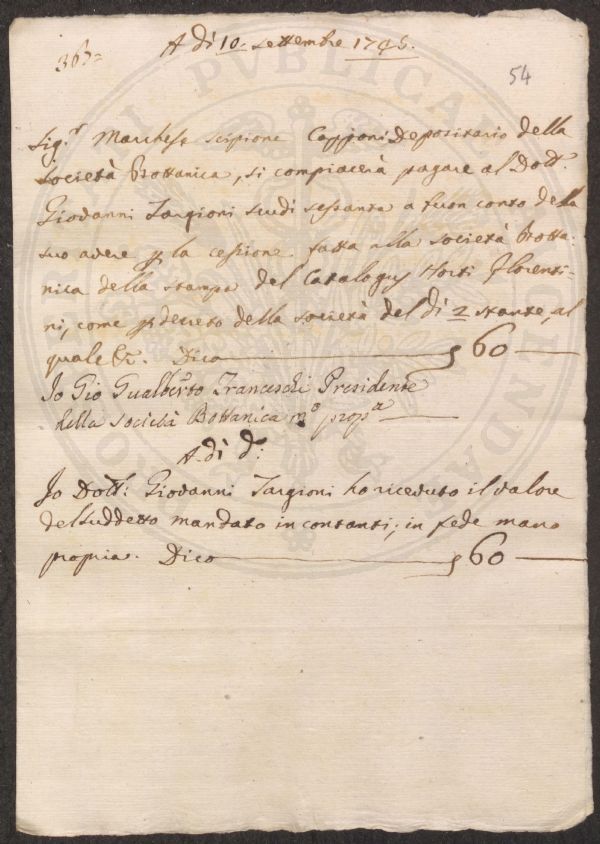 A dì 10. settembre 1746.
54
Sig.r Marchese Scipione Capponi Depositario della
Società Bottanica, si compiacerà pagare al Dott.
Giovanni Targioni scudi sessanta a buon conto della
suo avere p la cessione fatta alla Società Botta:
nica della stampa del Catalogus Horti Florenti:
ni, come p decreto della Società del dì 2 stante, al
quale &c. Dico 60
Io Gio Gualberto Franceschi Presidente
della Società Bottanica m.o prop.a
A dì d.o:
Io Dott: Giovanni Targioni ho ricevuto il valore
del suddetto mandato in contanti; in fede mano
propria. Dico 60